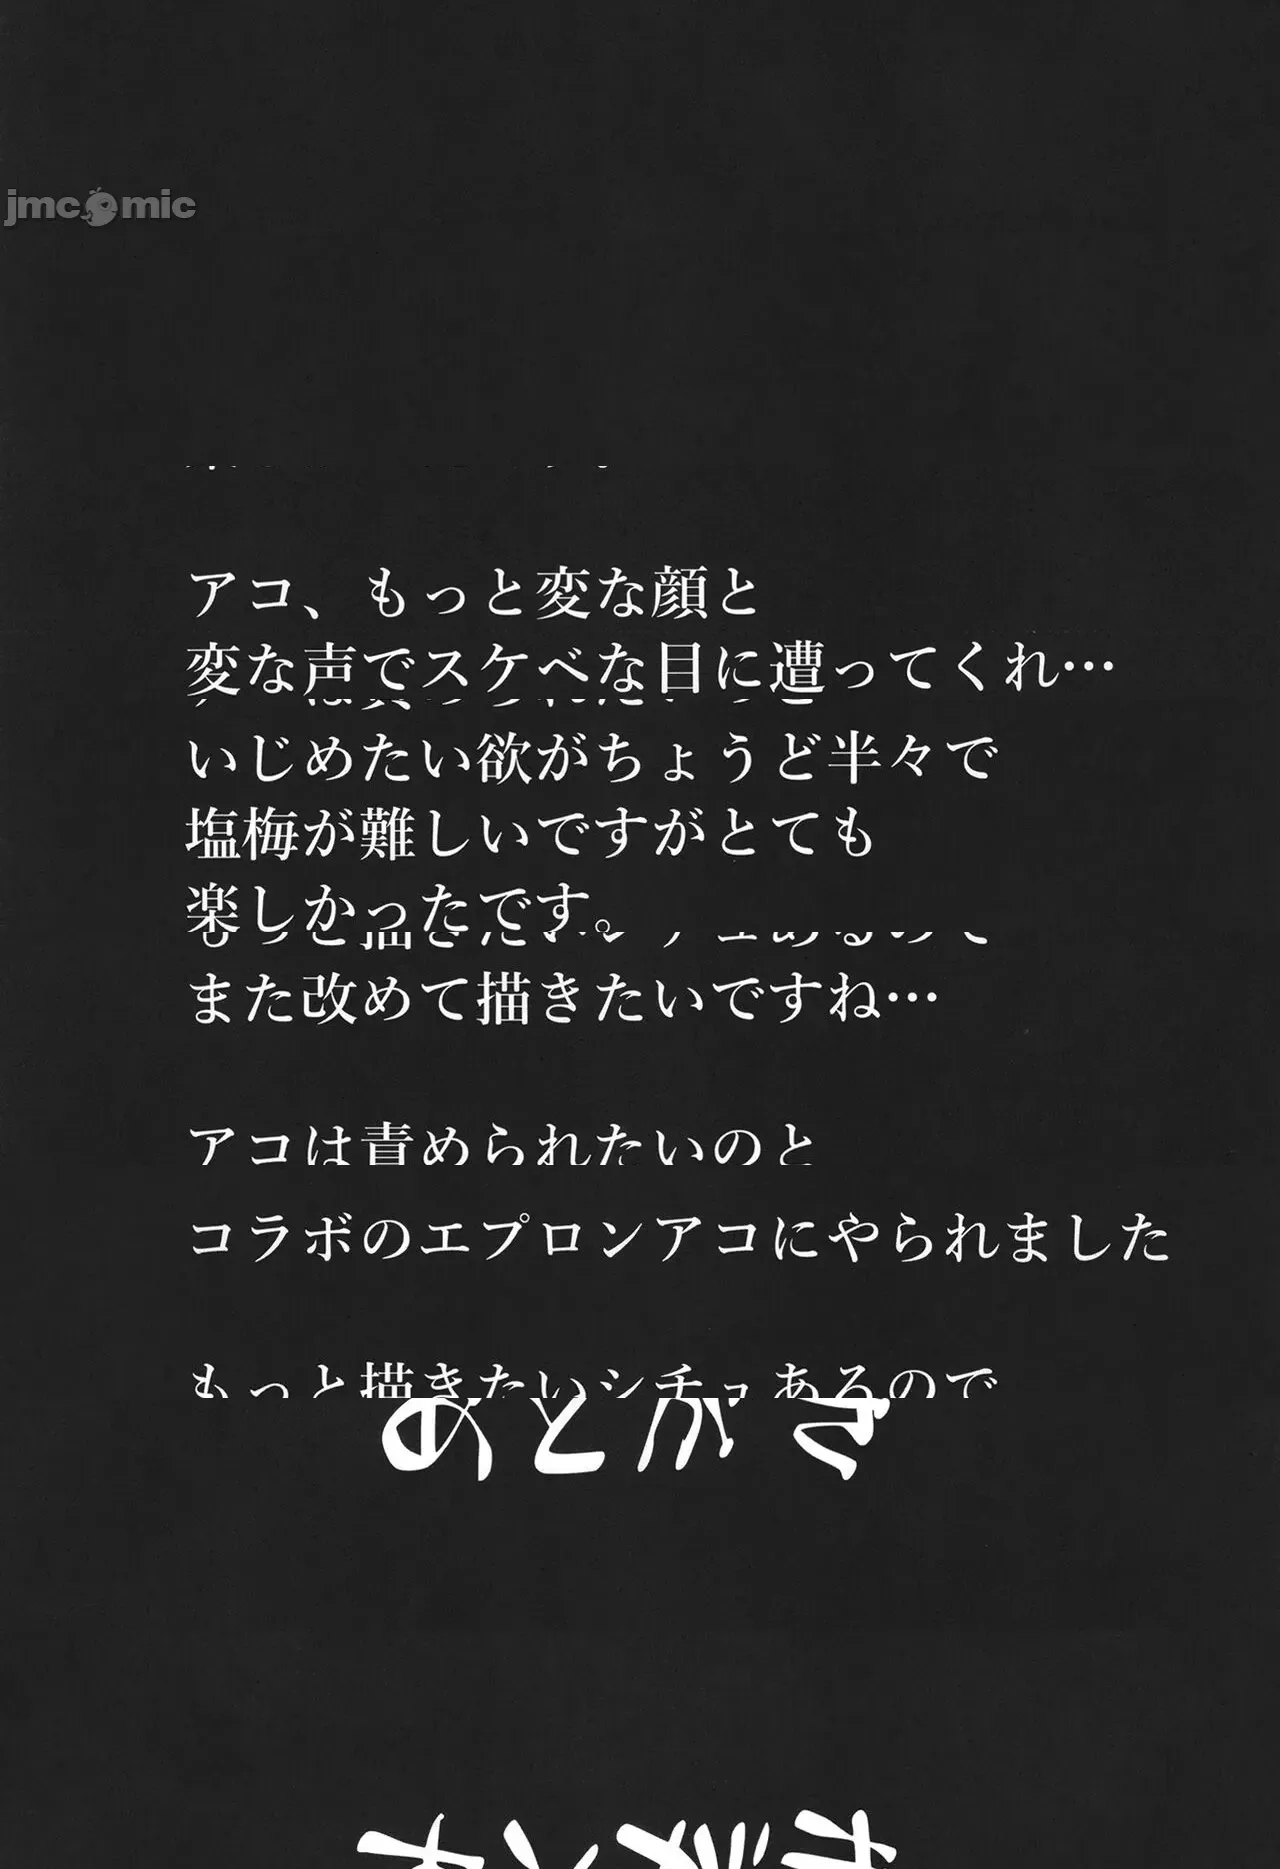 jmcomic
アコ、もっと変な顔と
変な声でスケベな目に遭ってくれ…
いじめたい欲がちょうど半々で
塩梅が難しいですがとても
楽しかったです。
また改めて描きたいですね…
アコは責められたいのと
コラボのエプロンアコにやられました
もっと描きたいシチュあるので
あとがき